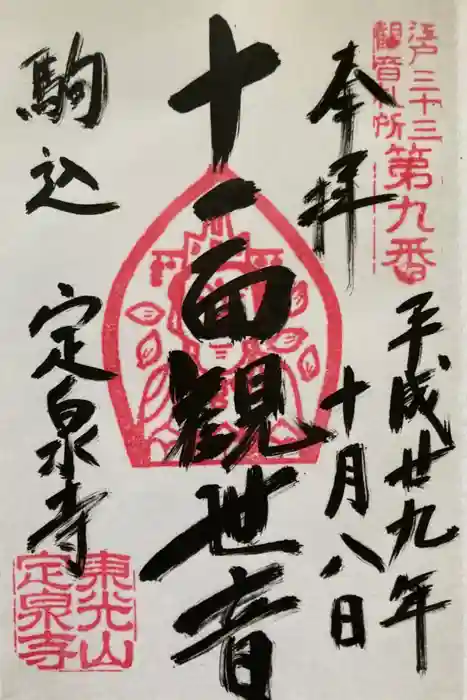 江戸三十三
観音札所
第九番
奉拝
平成廿九年
十月八日
十一面観世音
駒込 定泉寺
東光山
定泉寺